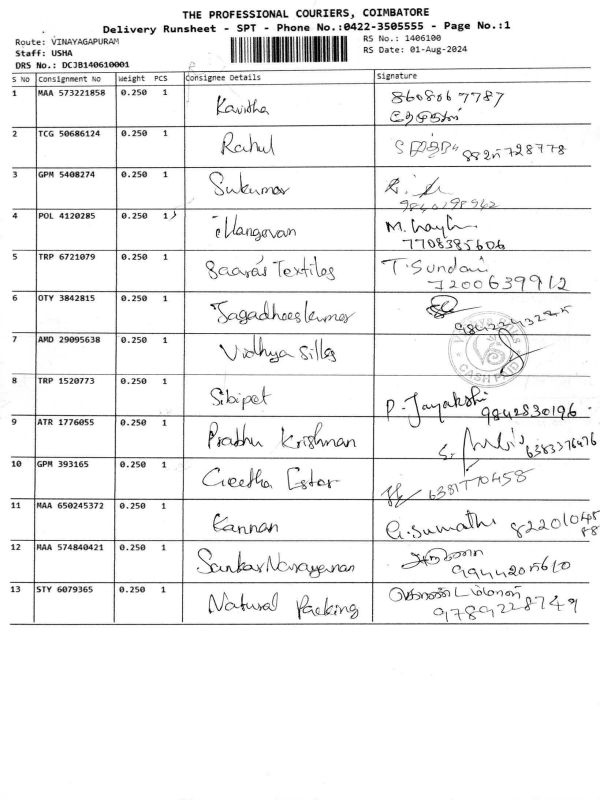 THE PROFESSIONAL COURIERS, COIMBATORE
Delivery Runsheet - SPT - Phone No.:0422-3505555 - Page No.:1
Route: VINAYAGAPURAM
Staff: USHA
DRS No.: DCJB140610001
RS No.: 1406100
RS Date: 01-Aug-2024
S No Consignment No Weight PCS Consignee Details Signature
1 MAA 573221858 0.250 1 Kavitha 8608067787
2 TCG 50686124 0.250 1 Rahul 8825728778
3 GPM 5408274 0.250 1 Sukumar
9840198962
4 POL 4120285 0.250 1 illangovan M.
7708385606
5 TRP 6721079 0.250 1 Saaras Textiles T. Sundari
7200639912
6 OTY 3842815 0.250 1 Jagadheeskumar
7 AMD 29095638 0.250 1 Vidhya Silks
CASH PAID
8 TRP 1520773 0.250 1 Sibipet P. Jayakshi
9842830196
9 ATR 1776055 0.250 1 Prabhu Krishnan 6383376476
10 GPM 393165 0.250 1 Geetha Estor 6381770458
11 MAA 650245372 0.250 1 Kannan G. Sumathi 82201045
88
12 MAA 574840421 0.250 1 Sankar Narayanan
9944205610
13 STY 6079365 0.250 1 Natural Packing
9789228749